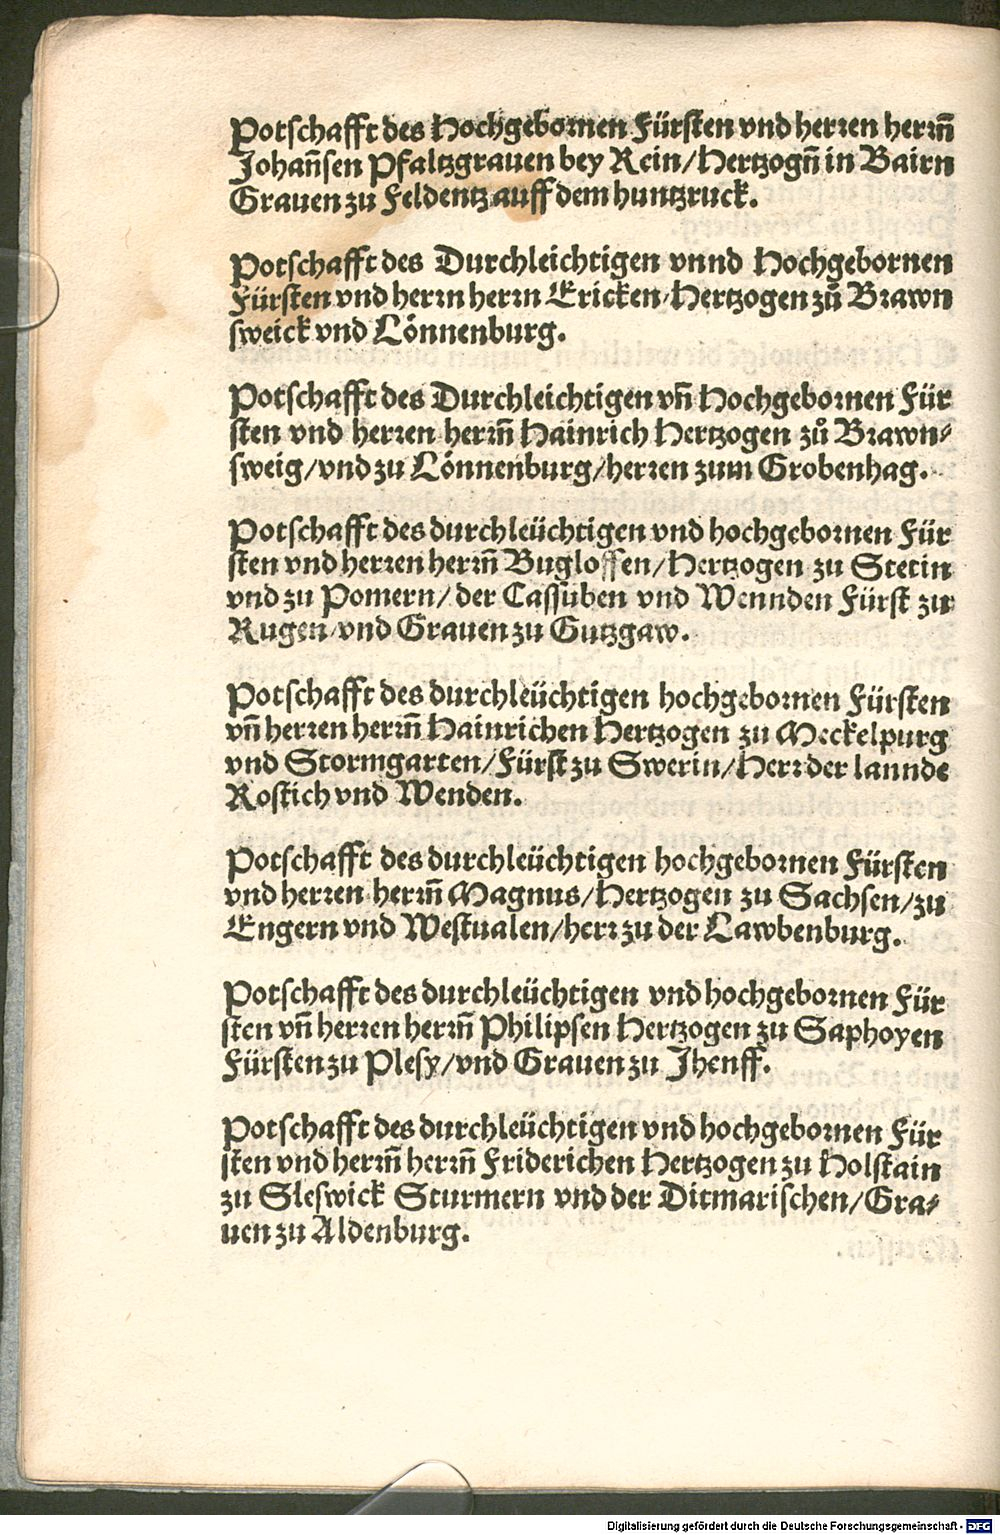 Potschafft des Hochgebornen Fürsten vnd herren herrn̄
Johan̄sen Pfaltzgrauen bey Rein/Hertzogn̄ in Bairn
Grauen zu Feldentz auff dem huntzruck.
Potschafft des Durchleichtigen vnnd Hochgebornen
Fürsten vnd herrn herrn Ericken/Hertzogen zů Brawn
sweick vnd Lönnenburg.
Potschafft des Durchleichtigen vn̄ Hochgebornen Für
sten vnd herren herrn̄ Hainrich Hertzogen zů Brawn⸗
sweig/vnd zu Lönnenburg/herren zum Grobenhag.
Potschafft des durchleüchtigen vnd hochgebornen Für
sten vnd herren herrn̄ Bugloffen/Hertzogen zu Stetin
vnd zu Pomern/der Cassuben vnd Wennden Fürst zu
Rugen/vnd Grauen zu Gutzgaw.
Potschafft des durchleüchtigen hochgebornen Fürsten
vn̄ herren herrn̄ Hainrichen Hertzogen zu Meckelpurg
vnd Stormgarten/Fürst zu Swerin/Herr der lannde
Rostich vnd Wenden.
Potschafft des durchleüchtigen hochgebornen Fürsten
vnd herren herrn̄ Magnus/Hertzogen zu Sachsen/zu
Engern vnd Westualen/herr zu der Lawbenburg.
Potschafft des durchleüchtigen vnd hochgebornen Für
sten vn̄ herren herrn̄ Philipsen Hertzogen zu Saphoyen
Fürsten zu Plesy/vnd Grauen zu Jhenff.
Potschafft des durchleüchtigen vnd hochgebornen Für
sten vnd herrn̄ herrn̄ Friderichen Hertzogen zu Holstain
zu Sleswick Sturmern vnd der Ditmarischen/Gra⸗
uen zu Aldenburg.
Digitalisierung gefördert durch die Deutsche Forschungsgemeinschaft - DFG